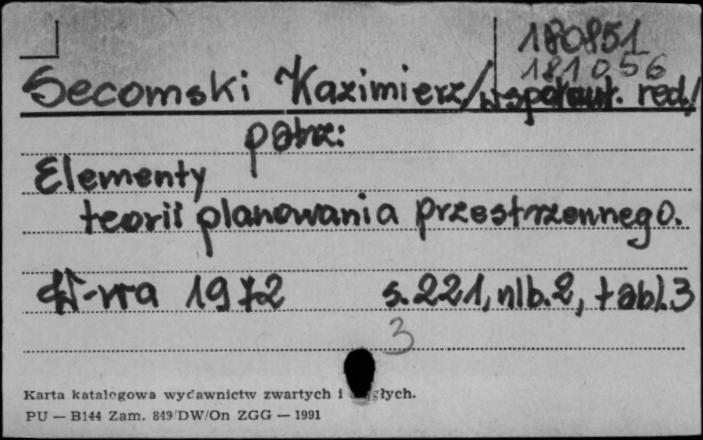 180851
181056
Secomski Kazimierz/współaut. red./
patrz:
Elementy
teorii planowania przestrzennego.
W-wa 1972 s. 221, nlb. 2, tabl. 3
3
Karta katalogowa wydawnictw zwartych i ciągłych.
PU — B144 Zam. 849/DW/On ZGG — 1991